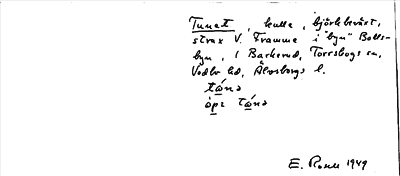 Tunet, kulle, björkbeväxt,
strax V. Framme i "byn" Bolls-
byn, i Backerud, Torrskogs sn,
Vedbo hd, Älvsborgs l.
E. Rosell 1949